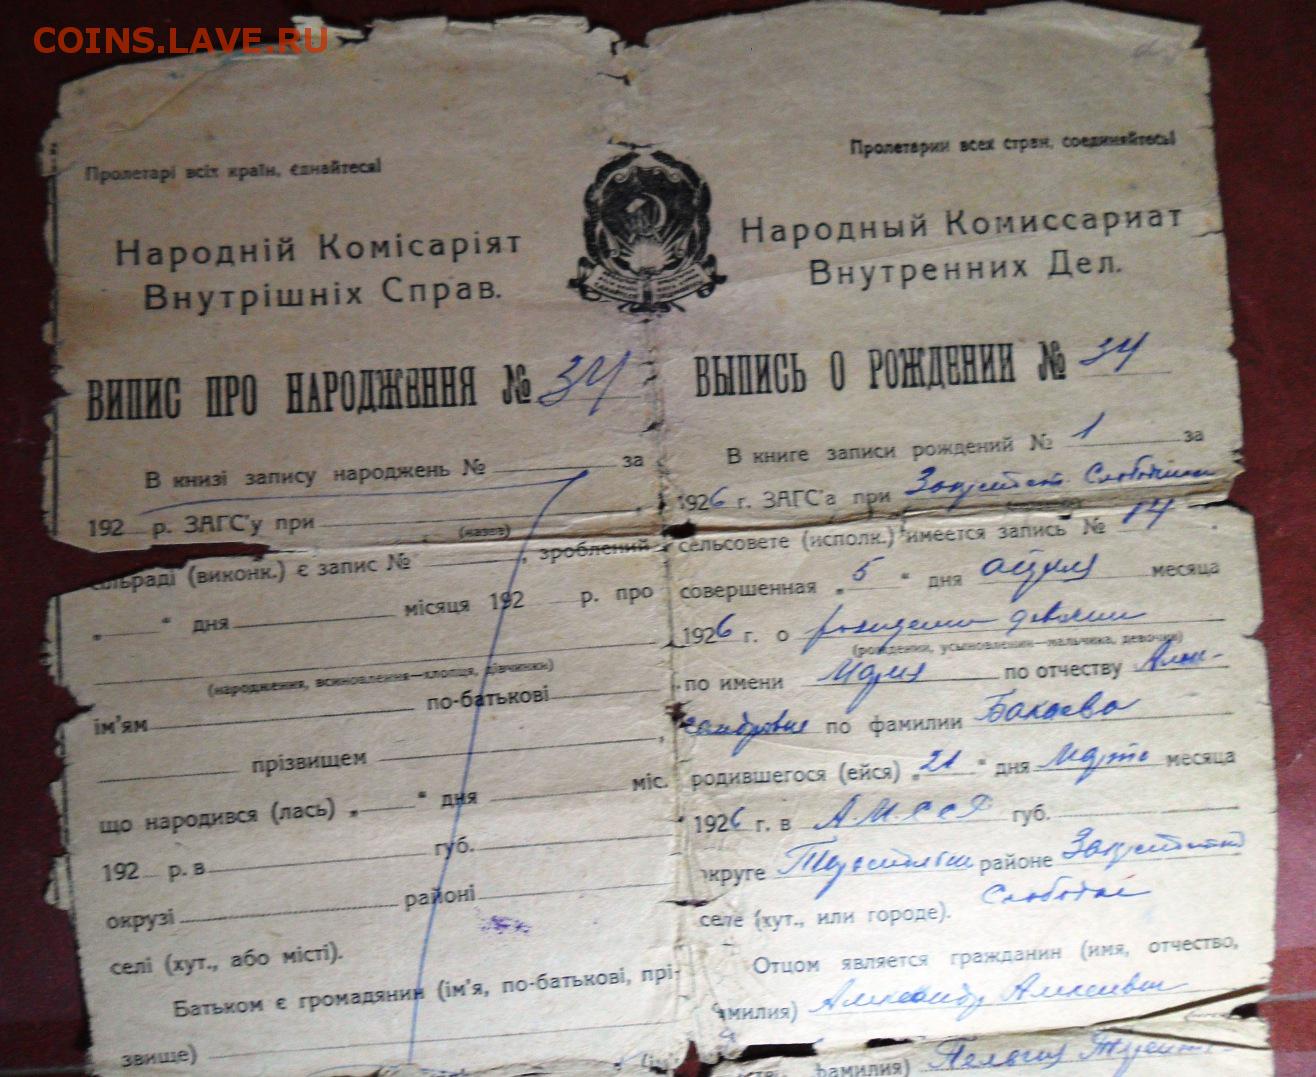 COINS.LAVE.RU
Пролетарі всіх країн, єднайтеся!
Народній Комісаріят
Внутрішніх Справ.
ВИПИС ПРО НАРОДЖЕННЯ № 34
В книзі запису народжень № за
192 р. ЗАГС'у при ,
(назва)
сільраді (виконк.) є запис № , зроблений
„ “ дня місяця 192 р. про
(народження, всиновлення—хлопця, дівчинки)
ім'ям по-батькові
прізвищем ,
що народився (лась) „ “ дня міс.
192 р. в губ.
окрузі районі
селі (хут., або місті).
Батьком є громадянин (ім'я, по-батькові, прі-
звище)
Пролетарии всех стран, соединяйтесь!
Народный Комиссариат
Внутренних Дел.
ВЫПИСЬ О РОЖДЕНИИ № 34
В книге записи рождений № 1 за
1926 г. ЗАГС'а при
сельсовете (исполк.) имеется запись № 14
совершенная „5“ дня апреля месяца
1926 г. о рождении девочки
(рождении, усыновлении—мальчика, девочки)
по имени Мария по отчеству Алек-
сандровне по фамилии Бакаева
родившегося (ейся) „21“ дня Марта месяца
1926 г. в А.М.С.С.Р губ.
округе районе
Слободзея
селе (хут., или городе).
Отцом является гражданин (имя, отчество,
фамилия) Александр Алексеевич
фамилия) Пелагия